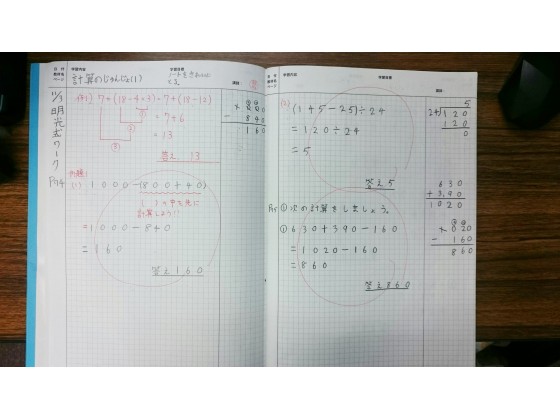 計算のじゅんじょ(1)
ノートをきれいに
とる。
11/1
明光式ワーク
P14
例1) 7+(18-4×3)=7+(18-12)
=7+6
=13
答え 13
1000
- 840
160
例題1
(1) 1000-(800+40)
( )の中を先に
計算しよう!!
=1000-840
=160
答え160
(2) (145-25)÷24
=120÷24
=5
答え5
5
24)120
120
0
P15 ① 次の計算をしましょう。
① 630+390-160
=1020-160
=860
答え860
630
+390
1020
1020
- 160
860